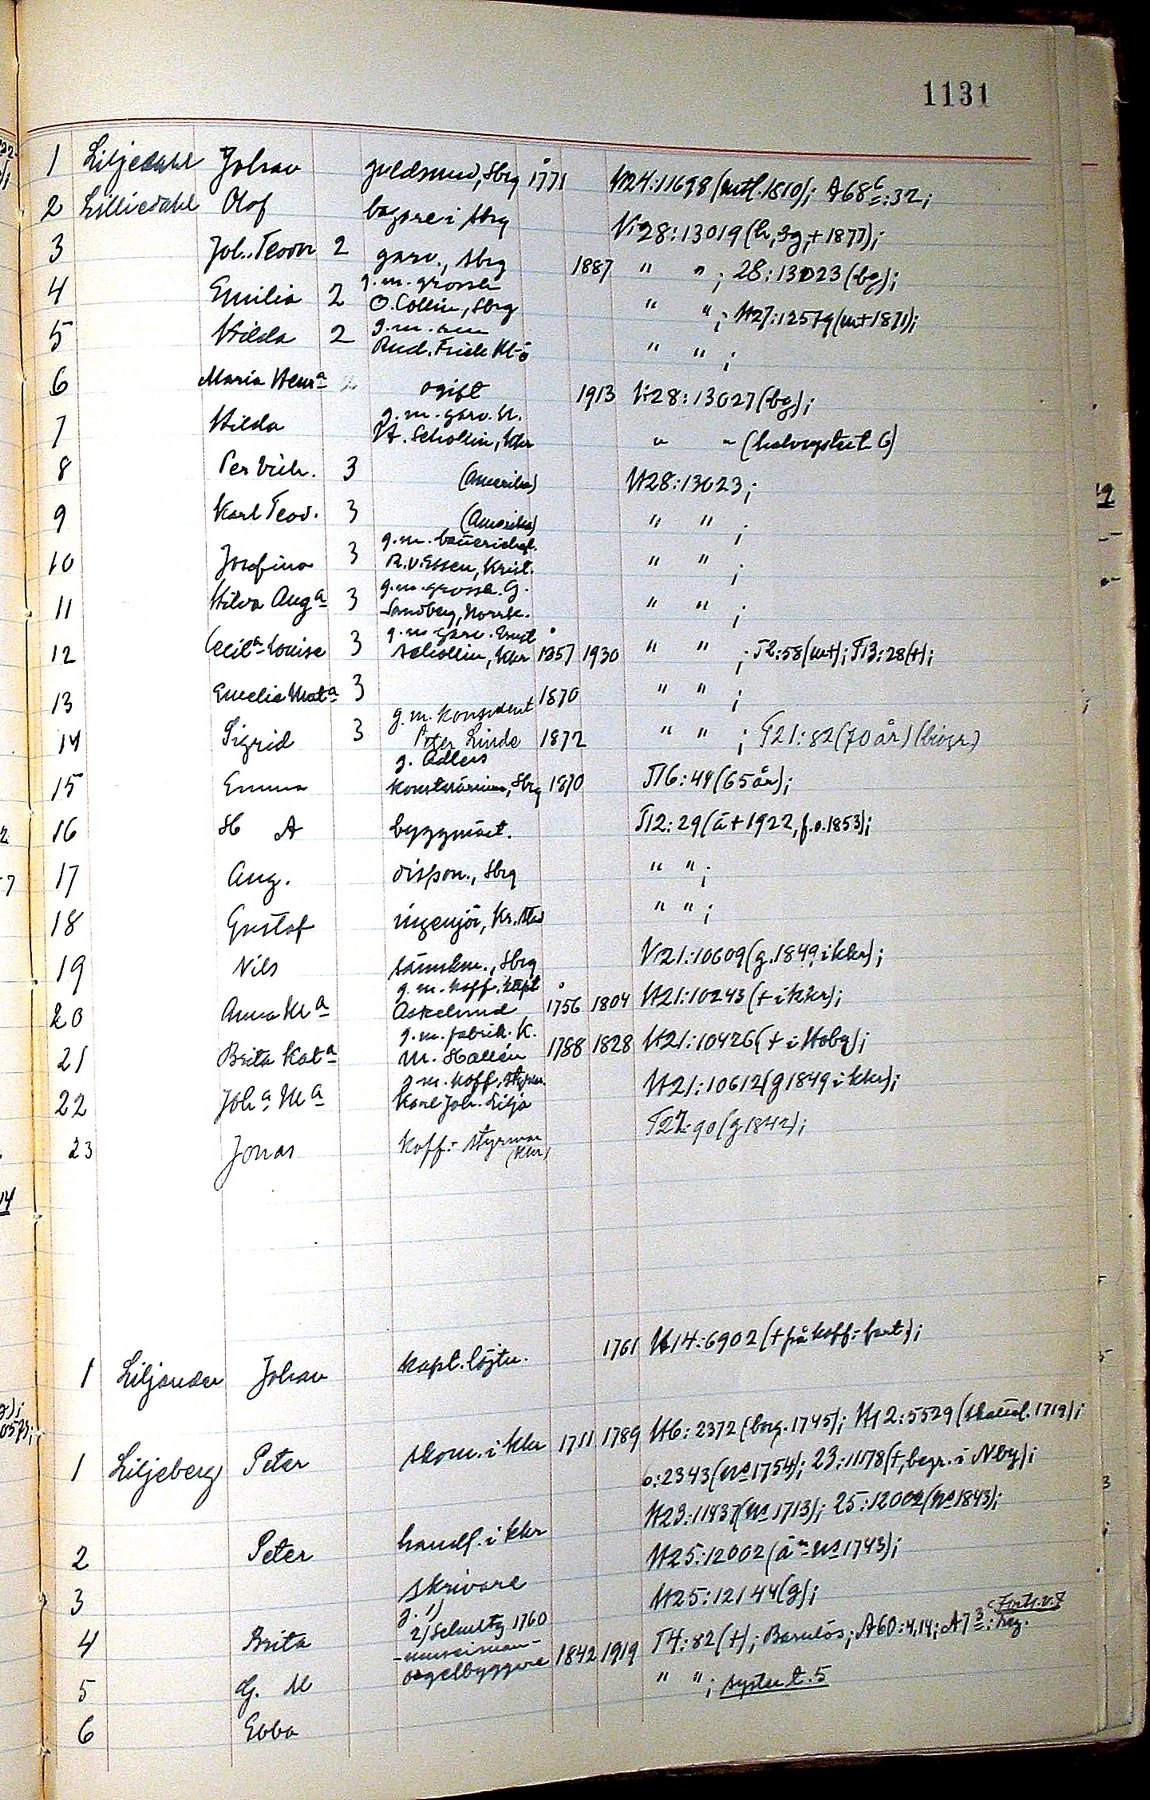 1131
1 Liljedahl Johan guldsmed, Sbrg 1771 H24:11698 (mtl. 1810); A68c:32;
2 Lilliedahl Olof bagare i Sbrg H28:13019 (h, 3g, + 1877);
3 Joh. Teodor 2 garv., Sbrg 1887 " " ; 28:13023 (bg);
4 Emilia 2 g.m. grossh. O. Collin, Sbrg " " ; H27:12579 (m+1871);
5 Hilda 2 g.m. Rud. Frick " " ;
6 Maria Hena 2 ogift 1913 H28:13027 (bg);
7 Hilda g.m. garv. H. Schollin, Kkr " " (halvsyster t. 6)
8 Per Vilh. 3 (Amerika) H28:13023;
9 Karl Teod. 3 (Amerika) " " ;
10 Josefina 3 g.m. R. v. Essen, Krist. " " ;
11 Hilda Auga 3 g.m. grossh. G. Sandberg, Norrk. " " ;
12 Cecila Louise 3 g.m. garv. Ernst Schollin, Kkr 1857 1930 " " ; T2:58 (m+); T13:28 (+);
13 Emelia Mata 3 1870 " " ;
14 Sigrid 3 g.m. konsulent Peter Linde 1872 " " ; T21:82 (70 år) (biogr.)
15 Emma g. Adlers konstnärinna, Sbrg 1870 T16:44 (65 år);
16 H A byggmäst. T12:29 (ä + 1922, f.o. 1853);
17 Aug. dispon., Sbrg " " ;
18 Gustof ingenjör, Kr. stad " " ;
19 Nils sämskm., Sbrg H21:10609 (g. 1849 i kkr);
20 Anna Ma g.m. koff. kapt Askelund 1756 1804 H21:10243 (+ i kkr);
21 Brita Kata g.m. fabrik. K. M. Hallén 1788 1828 H21:10426 (+ i Hoby);
22 Joha Ma g.m. koff. styrm. Karl Joh. Lilja H21:10612 (g 1849 i kkr);
23 Jonas koff:- styrman (Kkr) T27:90 (g 1842);
1 Liljander Johan kapt. löjtn. 1761 H14:6902 (+ på koff:- fart.);
1 Liljeberg Peter skom. i kkr 1711 1789 H6:2372 (borg. 1745); H12:5529 (1719);
6:2343 (no 1754); 23:11178 (+, begr. i Nby);
H23:11437 (no 1713); 25:12002 (no 1843);
2 Peter handl. i kkr H25:12002 (än no 1743);
3 skrivare H25:12144 (g);
4 Brita g. 1) 2) Schultz 1760 T4:82 (+); Barnlös; A60:4,14; A73:
Forts. v. 7
5 G. M orgelbyggare 1842 1919 " " ; syster t. 5
6 Ebba